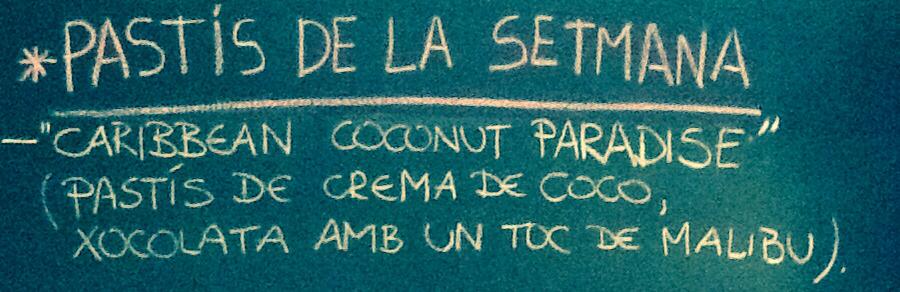 *PASTÍS DE LA SETMANA
-"CARIBBEAN COCONUT PARADISE"
(PASTÍS DE CREMA DE COCO,
XOCOLATA AMB UN TOC DE MALIBU).